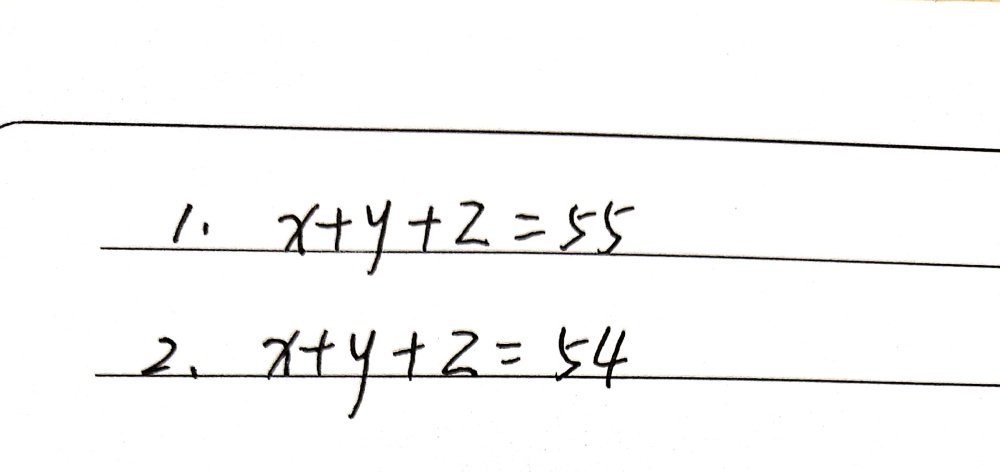 1. x+y+z=55
2. x+y+z=54